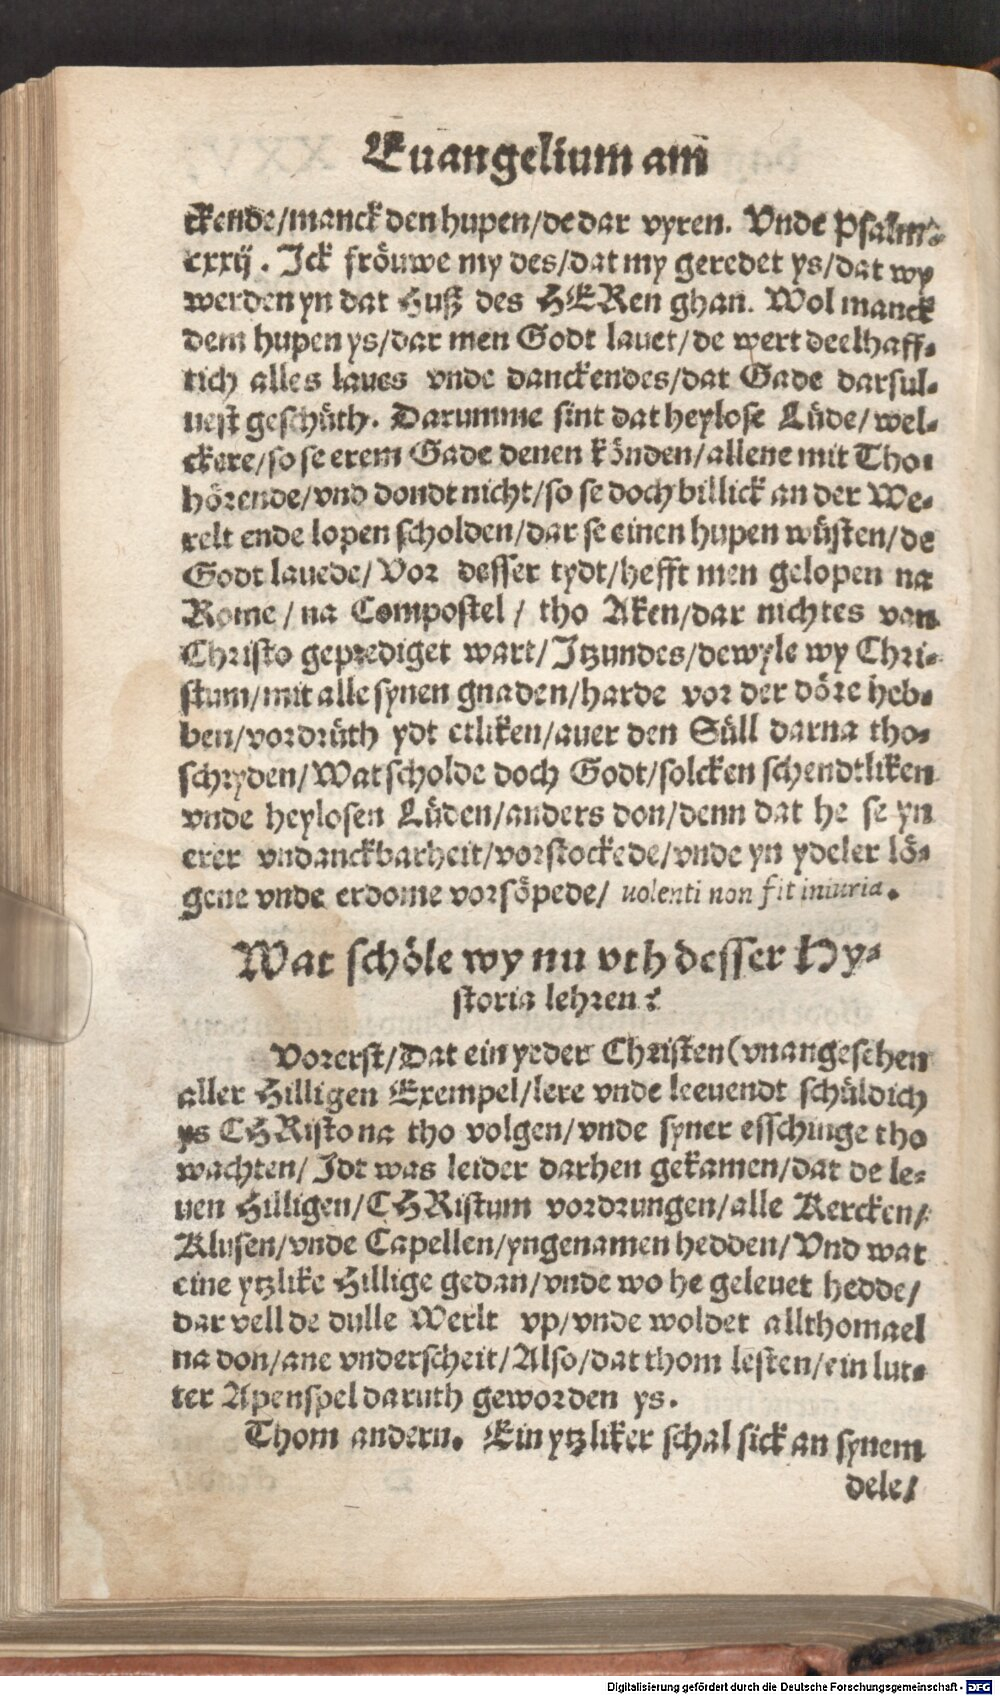 Euangelium am̄
ckende/manck den hupen/de dar vyren. Vnde Psalm.
cxxij. Ick fröuwe my des/dat my geredet ys/dat wy
werden yn dat Huß des HERen ghan. Wol manck
dem hupen ys/dar men Godt lauet/de wert deelhaff-
tich alles laues vnde danckendes/dat Gade darsul-
uest geschüth. Darumme sint dat heylose Lüde/wel-
ckere/so se erem Gade denen könden/allene mit Tho-
hörende/vnd dondt nicht/so se doch billick an der We-
relt ende lopen scholden/dar se einen hupen wüsten/de
Godt lauede/Vor desser tydt/hefft men gelopen na
Rome/na Compostel/tho Aken/dar nichtes van
Christo geprediget wart/Itzundes/dewyle wy Chri-
stum/mit alle synen gnaden/harde vor der döre heb-
ben/vordrüth ydt etliken/auer den Süll darna tho-
schryden/Wat scholde doch Godt/solcken schendtliken
vnde heylosen Lüden/anders don/denn dat he se yn
erer vndanckbarheit/vorstockede/vnde yn ydeler lö-
gene vnde erdome vorsöpede/ uolenti non fit iniuria.
Wat schöle wy nu vth desser Hy-
storia lehren?
Vorerst/Dat ein yeder Christen(vnangesehen
aller Hilligen Exempel/lere vnde leeuendt schüldich
ys CHRisto na tho volgen/vnde syner esschinge tho
wachten/Idt was leider darhen gekamen/dat de le-
uen Hilligen/CHRistum vordrungen/alle Kercken/
Klusen/vnde Capellen/yngenamen hedden/Vnd wat
eine ytzlike Hillige gedan/vnde wo he geleuet hedde/
dar vell de dulle Werlt vp/vnde woldet allthomael
na don/ane vnderscheit/Also/dat thom lesten/ein lut-
ter Apenspel daruth geworden ys.
Thom andern. Ein ytzliker schal sick an synem
dele/
Digitalisierung gefördert durch die Deutsche Forschungsgemeinschaft - DFG